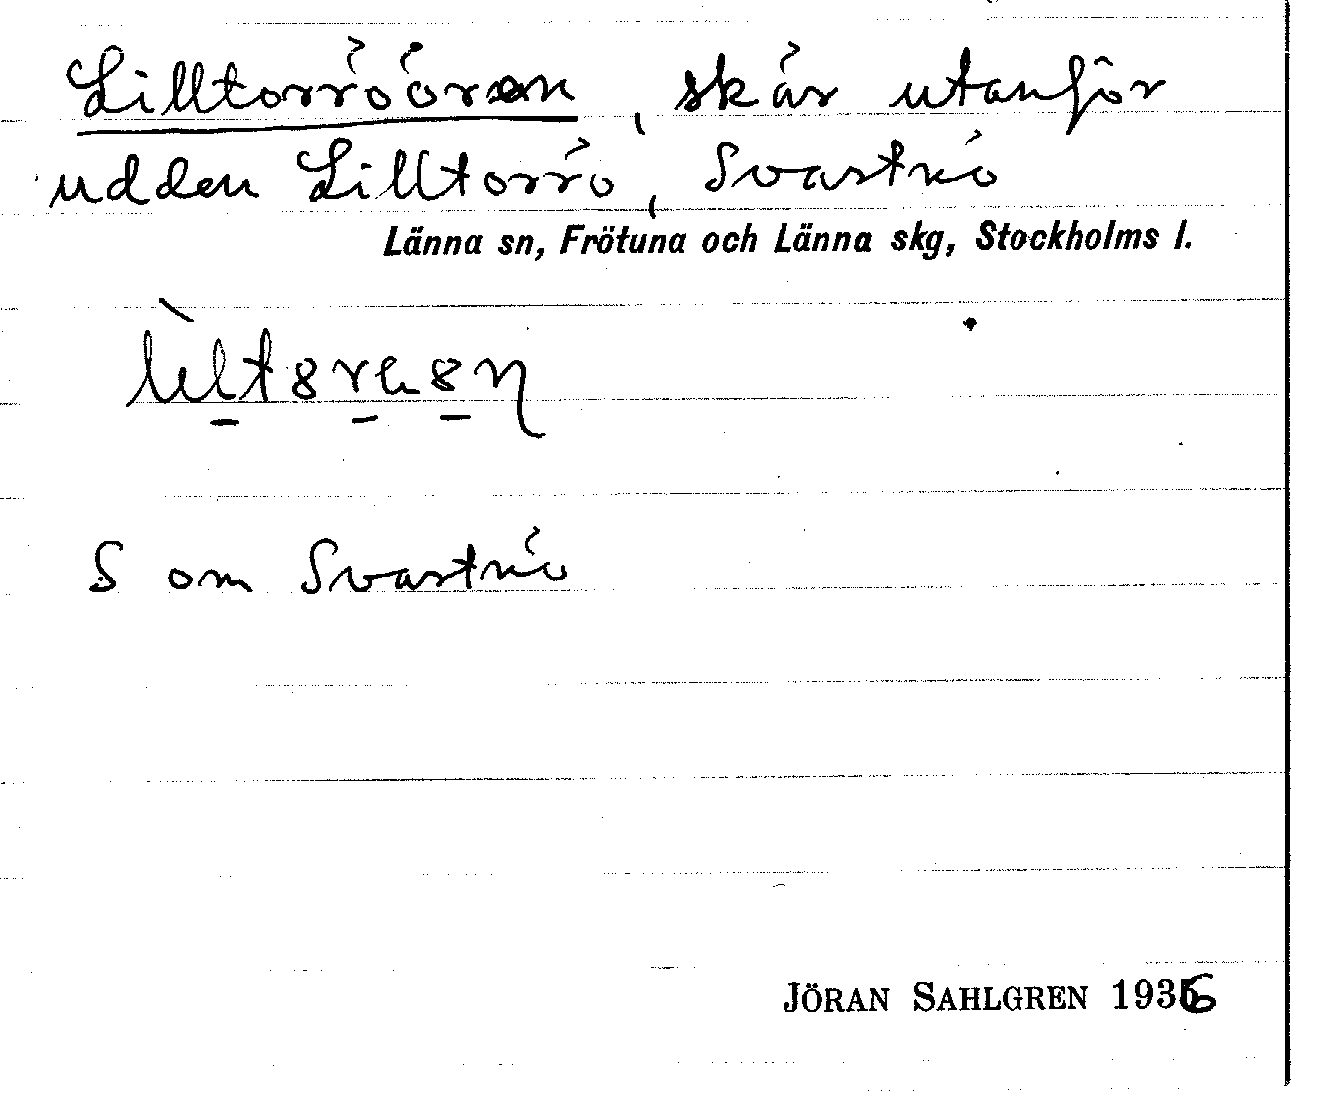 Lilltorröören, skär utanför
udden Lilltorrö, Svartnö
Länna sn, Frötuna och Länna skg, Stockholms l.
S om Svartnö
JÖRAN SAHLGREN 1936